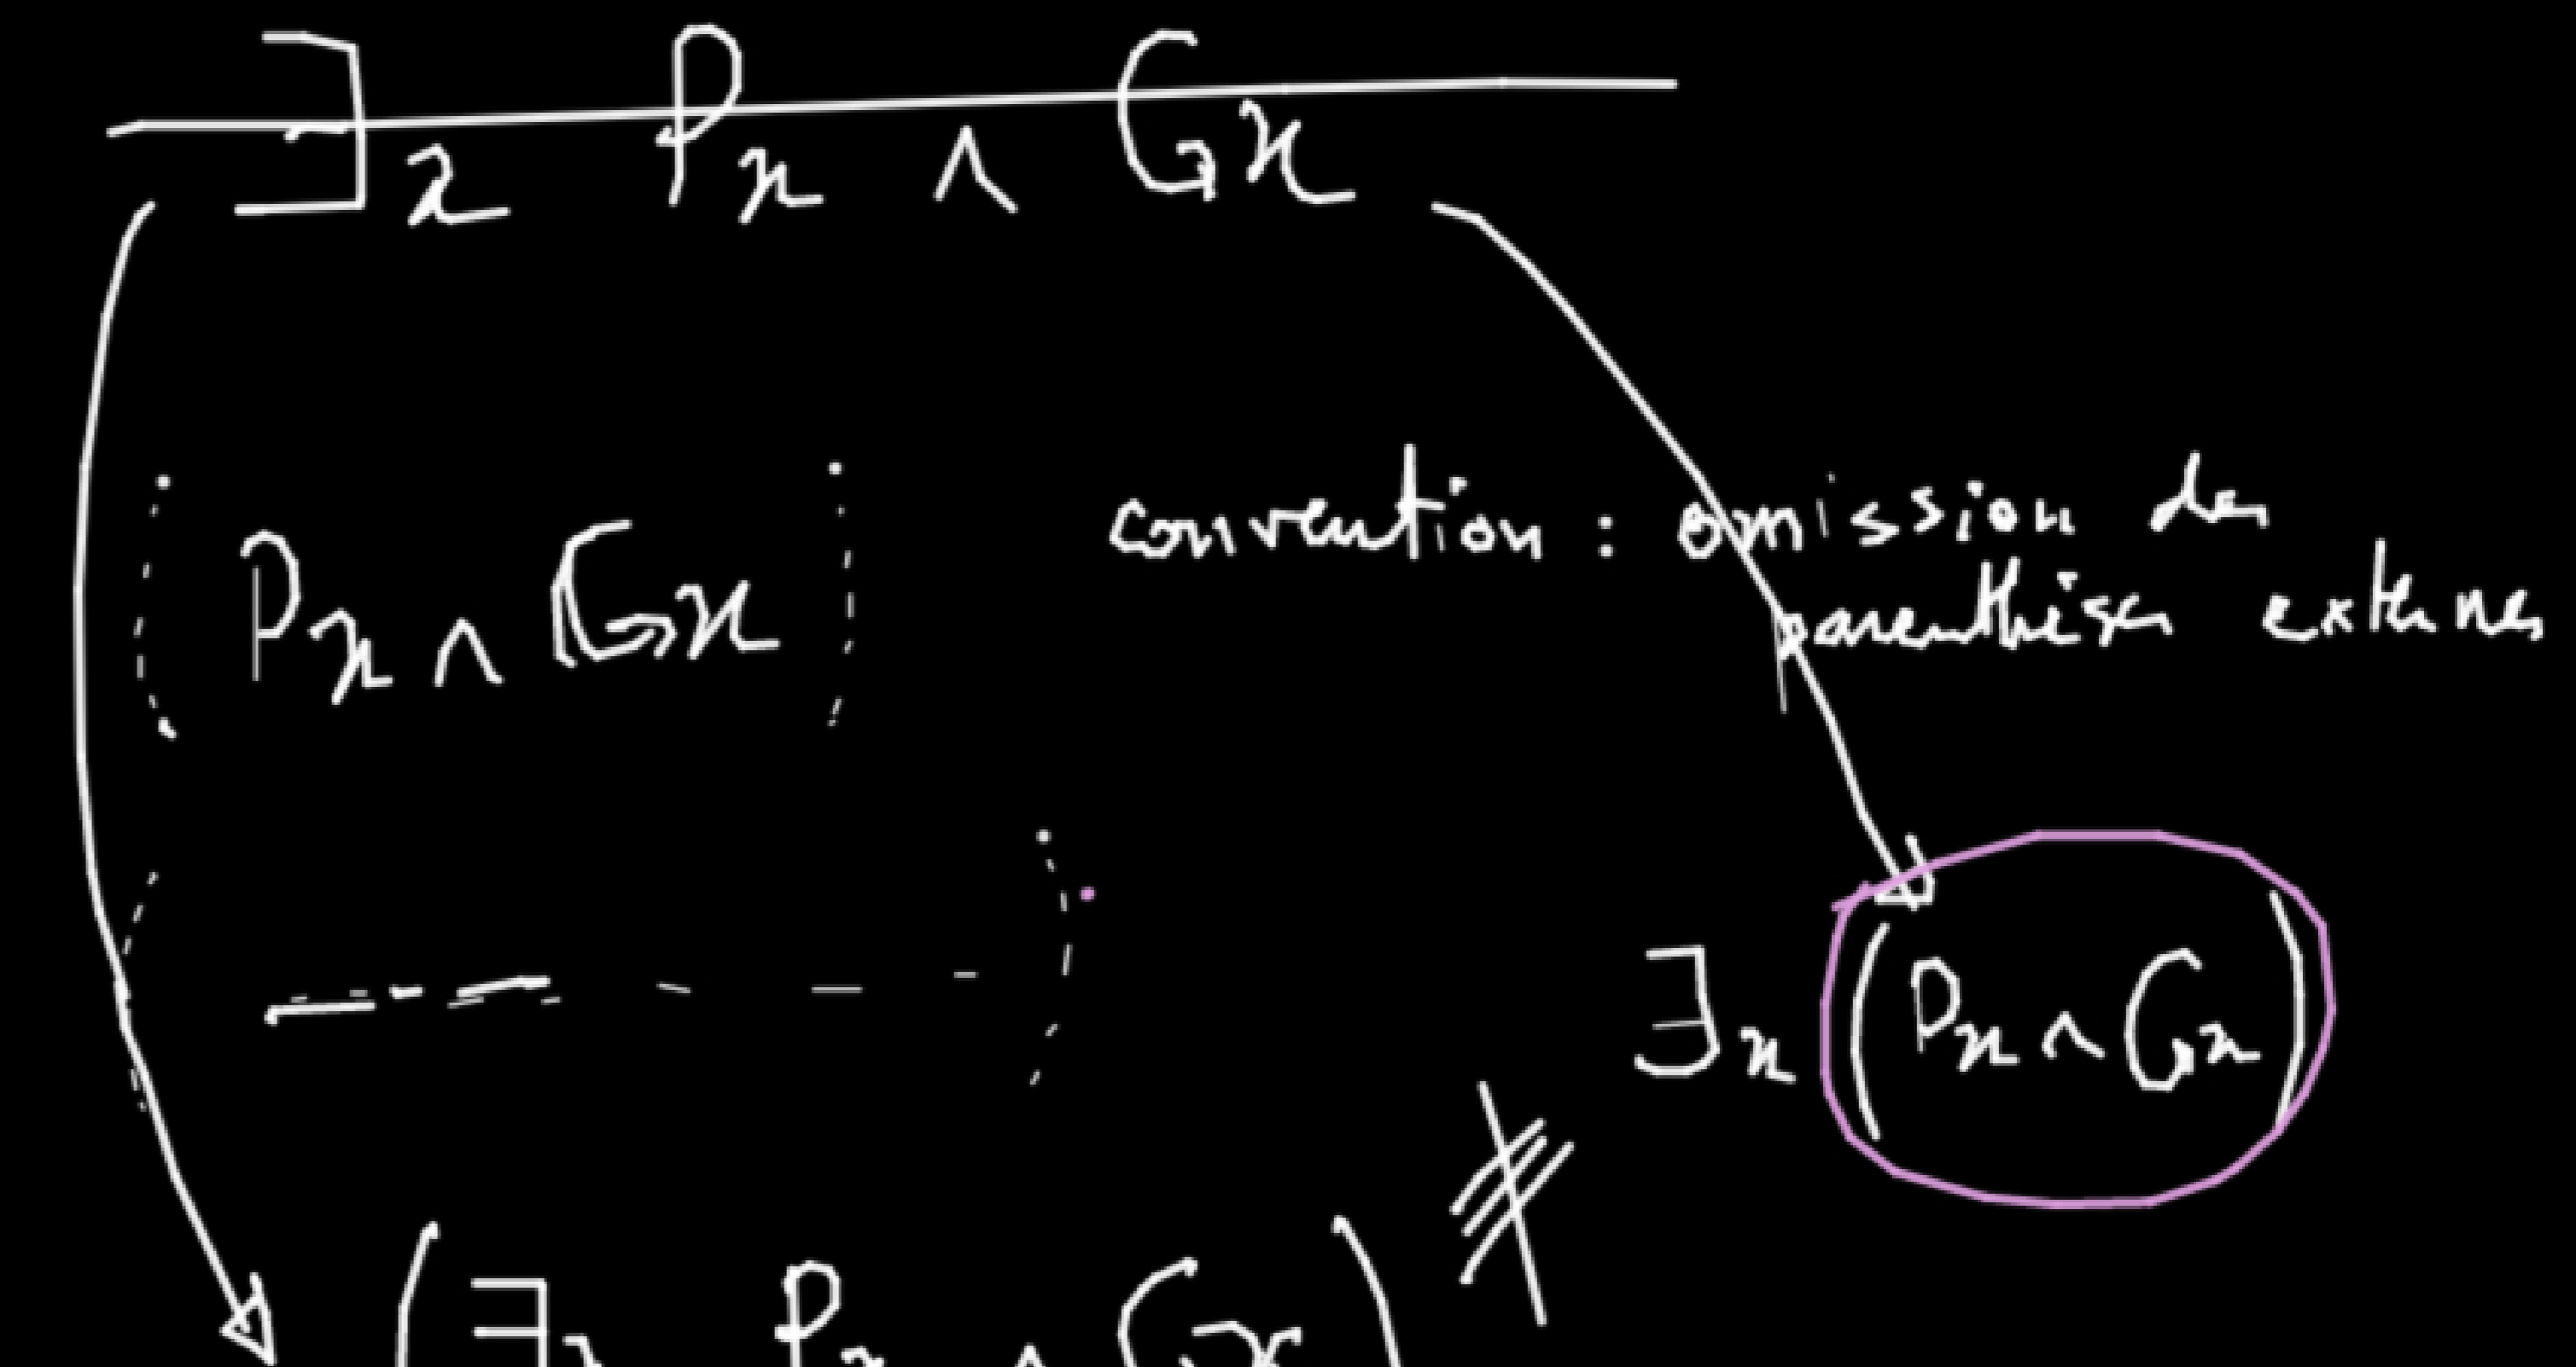 ∃x Px ∧ Gx
Px ∧ Gx
convention : omission des
parenthèses externes
∃x (Px ∧ Gx)
≢
(∃x Px ∧ Gx)